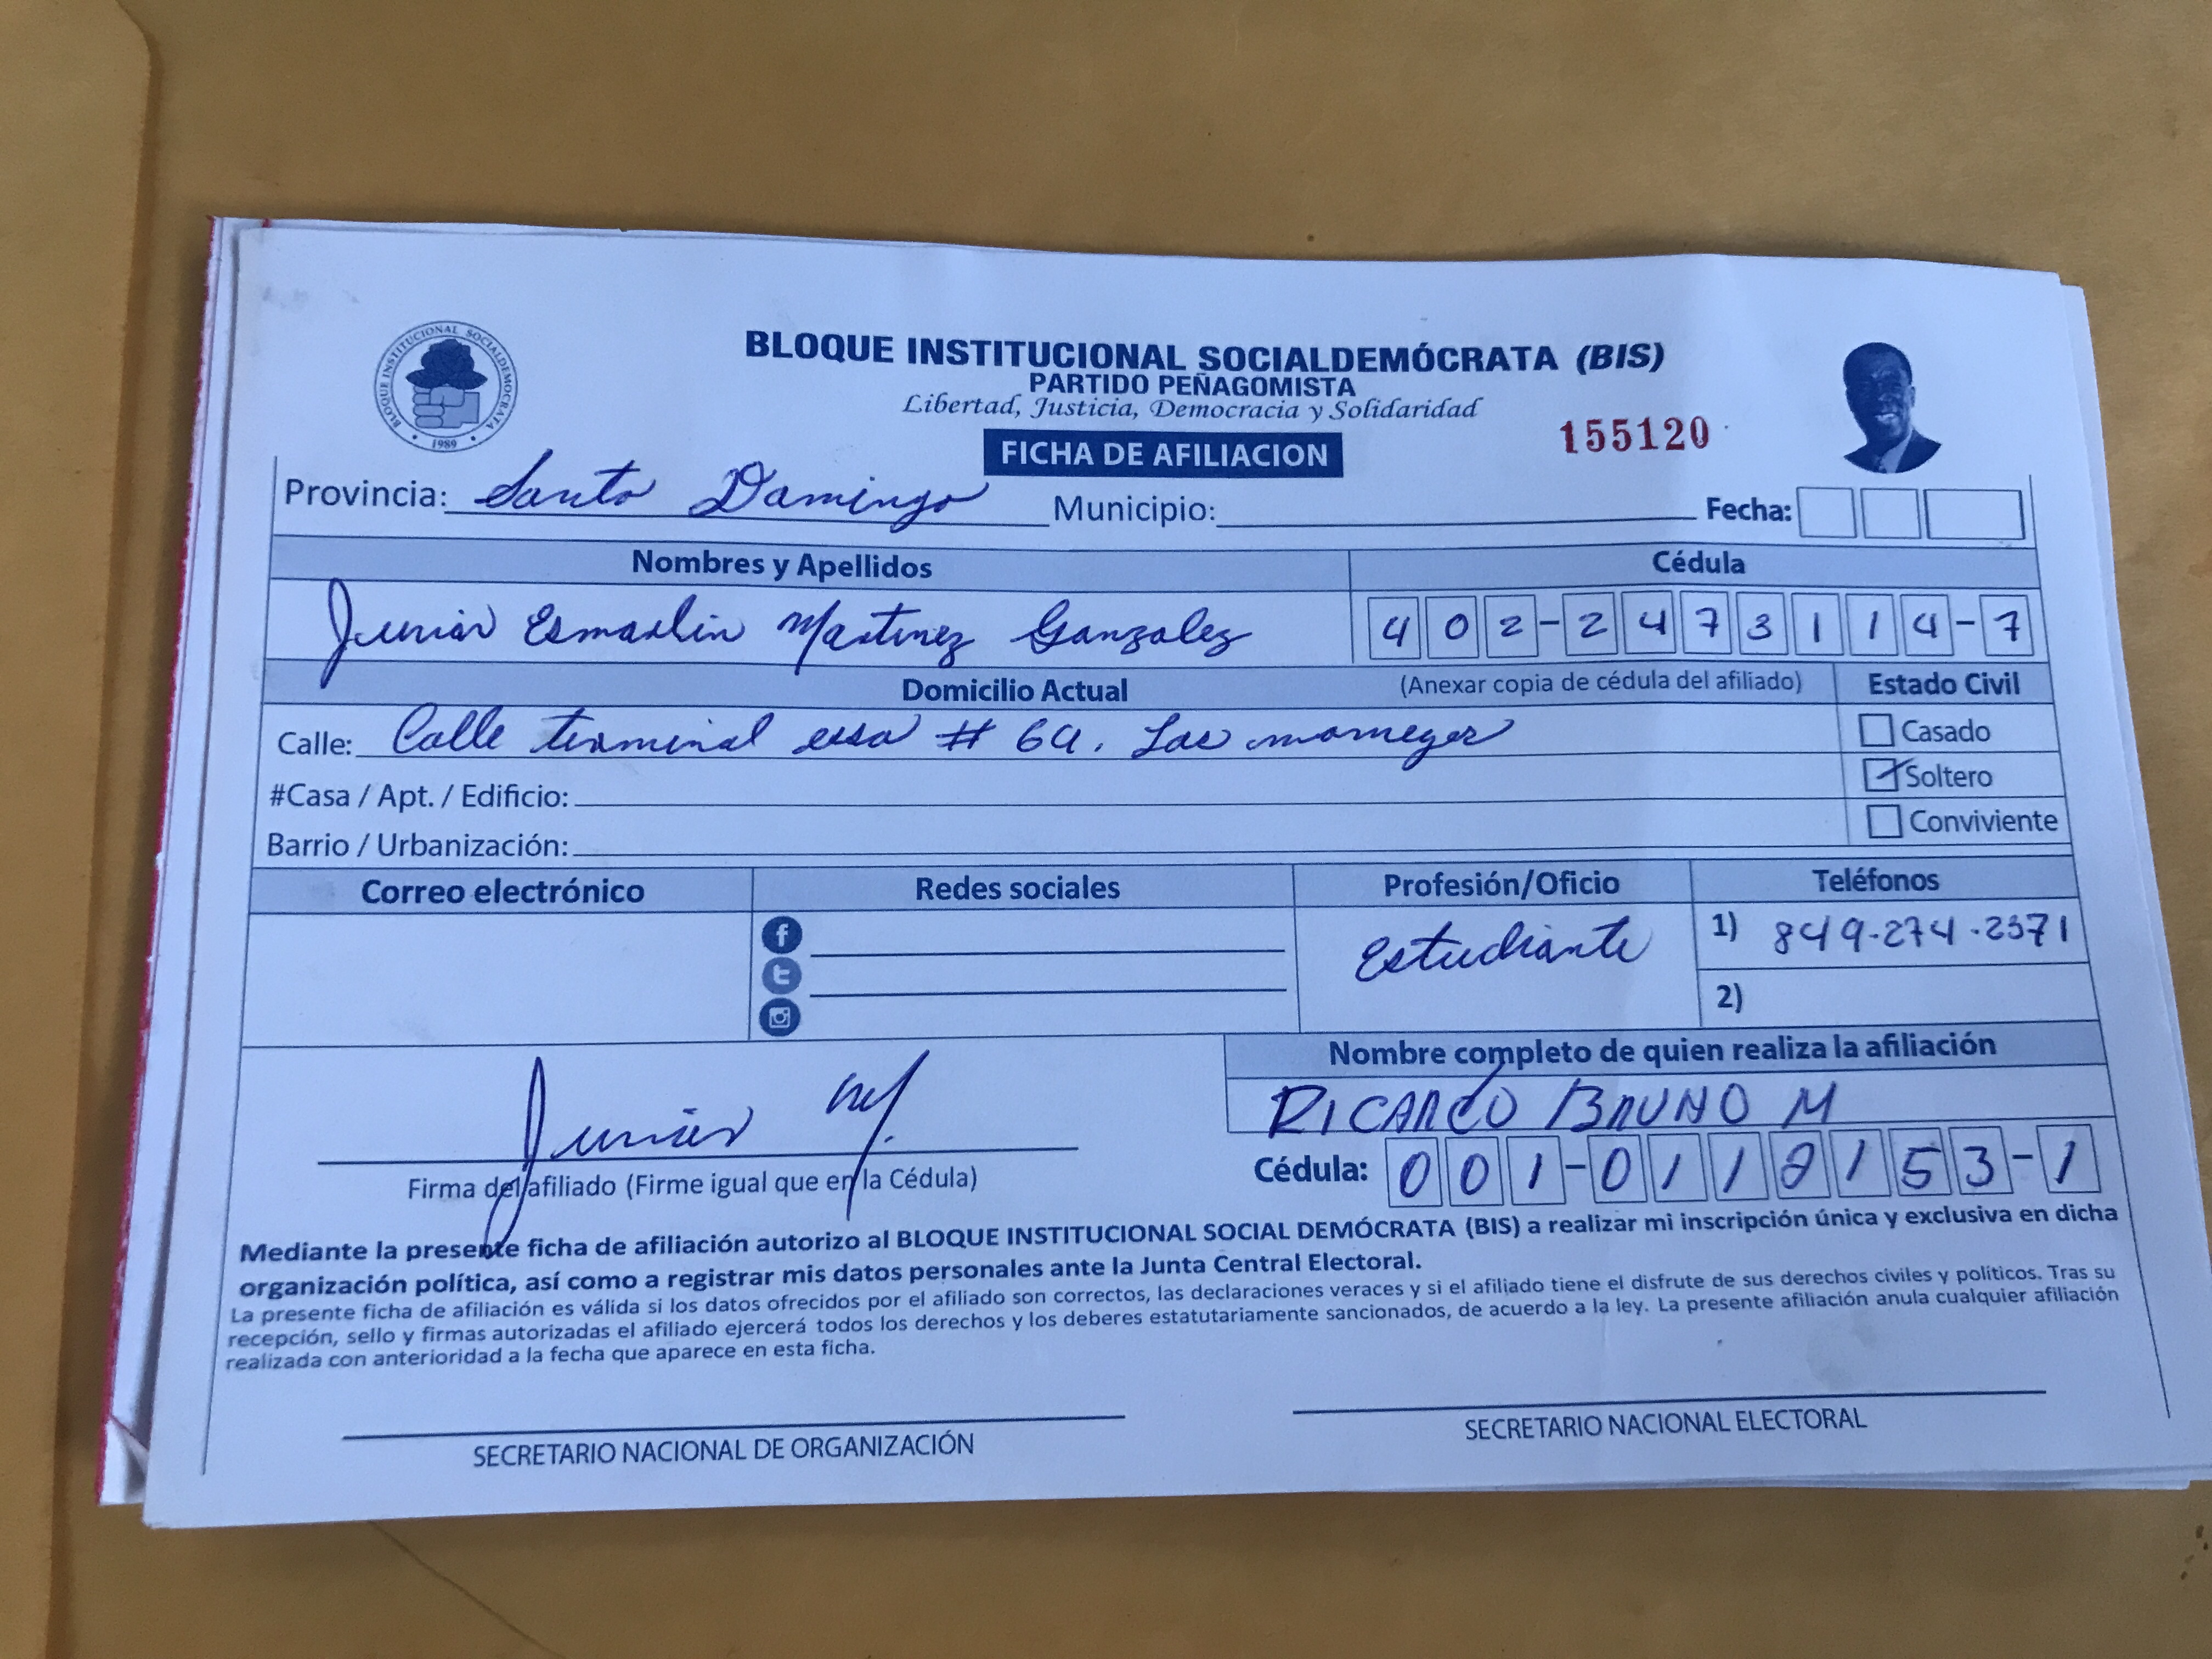 BLOQUE INSTITUCIONAL SOCIALDEMÓCRATA (BIS)
PARTIDO PEÑAGOMISTA
Libertad, Justicia, Democracia y Solidaridad
BLOQUE INSTITUCIONAL SOCIALDEMOCRATA
1989
FICHA DE AFILIACION
155120
Provincia: Santo Domingo Municipio: Fecha:
Nombres y Apellidos Cédula
Junior Esmarlin Martinez Gonzalez 402-2473114-7
Domicilio Actual (Anexar copia de cédula del afiliado) Estado Civil
Calle: Calle terminal essa # 69. Las
Casado
Soltero
#Casa / Apt. / Edificio:
Conviviente
Barrio / Urbanización:
Correo electrónico Redes sociales Profesión/Oficio Teléfonos
Estudiante 1) 849-274-2371
2)
Nombre completo de quien realiza la afiliación
RICARDO BRUNO M
Junior M.
Firma del afiliado (Firme igual que en la Cédula) Cédula: 001-0112153-1
Mediante la presente ficha de afiliación autorizo al BLOQUE INSTITUCIONAL SOCIAL DEMÓCRATA (BIS) a realizar mi inscripción única y exclusiva en dicha
organización política, así como a registrar mis datos personales ante la Junta Central Electoral.
La presente ficha de afiliación es válida si los datos ofrecidos por el afiliado son correctos, las declaraciones veraces y si el afiliado tiene el disfrute de sus derechos civiles y políticos. Tras su
recepción, sello y firmas autorizadas el afiliado ejercerá todos los derechos y los deberes estatutariamente sancionados, de acuerdo a la ley. La presente afiliación anula cualquier afiliación
realizada con anterioridad a la fecha que aparece en esta ficha.
SECRETARIO NACIONAL DE ORGANIZACIÓN SECRETARIO NACIONAL ELECTORAL